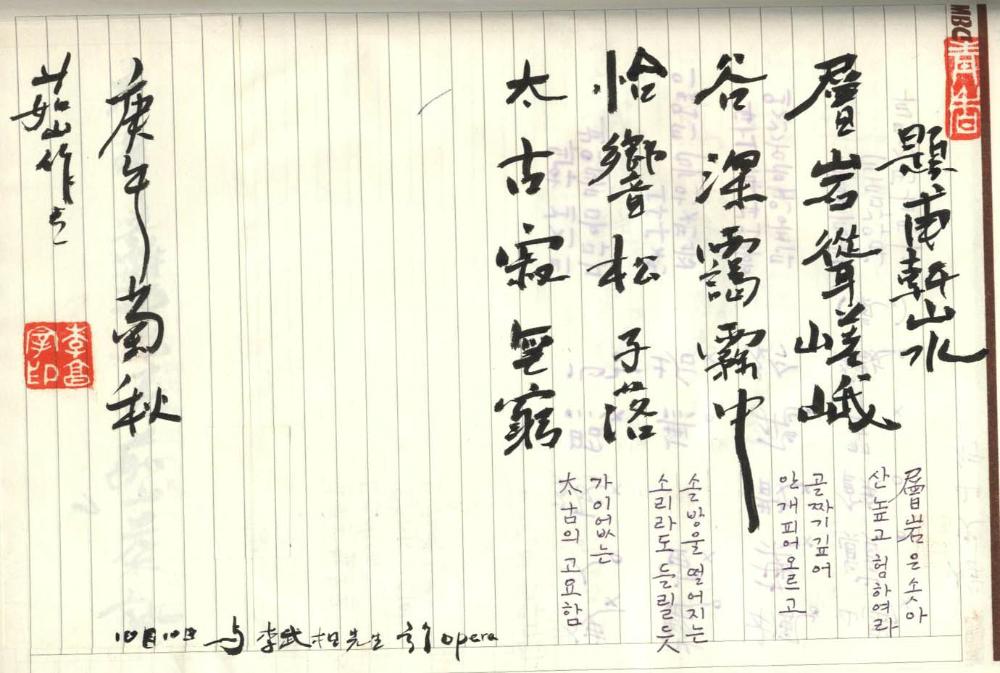 MBC
題甫軒山水
層岩聳嵯峨
谷深靄霧中
恰響松子落
太古寂無窮
層岩은 솟아
산높고 험하여라
골짜기깊어
안개피어오르고
솔방울 떨어지는
소리라도 들릴듯
가이없는
太古의 고요함
庚午菊秋
茹山作之
10月10日 与 李武相先生 opera